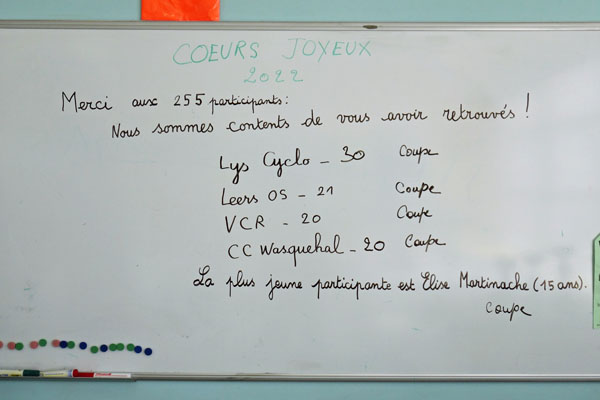 COEURS JOYEUX
2022
Merci aux 255 participants :
Nous sommes contents de vous avoir retrouvés !
Lys Cyclo - 30 Coupe
Leers OS - 21 Coupe
VCR - 20 Coupe
CC Wasquehal - 20 Coupe
La plus jeune participante est Elise Martinache (15 ans).
Coupe